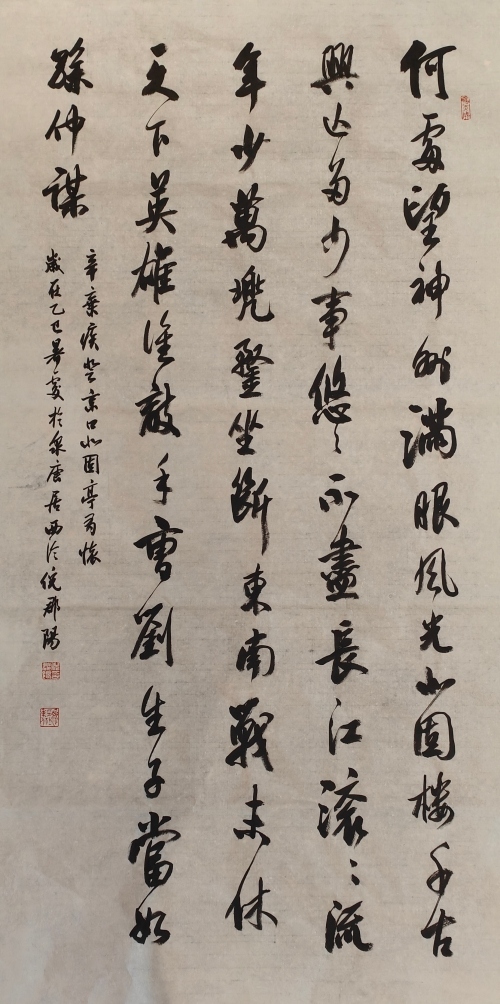 何處望神州滿眼風光北固樓千古
興亡多少事悠〻不盡長江滾〻流
年少萬兜鍪坐斷東南戰未休
天下英雄誰敵手曹劉生子當如
孫仲謀
辛棄疾登京口北固亭有懷
歲在乙巳暑夏於泉唐居西泠倪郡陽